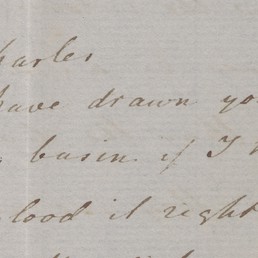 harles
have drawn yo
basin. if I
lood it right